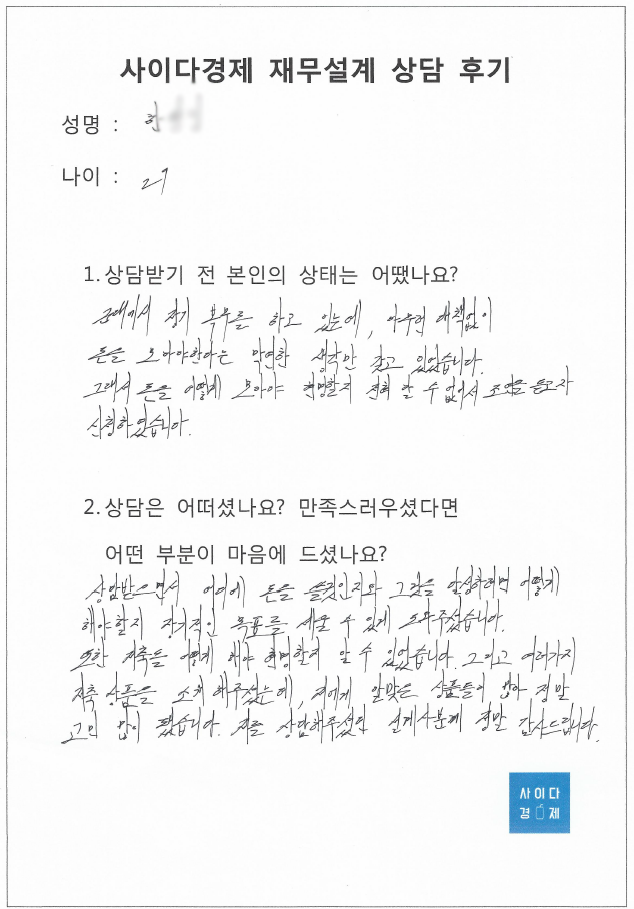 사이다경제 재무설계 상담 후기
성명 : 한
나이 : 27
1. 상담받기 전 본인의 상태는 어땠나요?
군대에서 장기 복무를 하고 있는데, 아무런 대책없이
돈을 모아야한다는 막연한 생각만 갖고 있었습니다.
그래서 돈을 어떻게 모아야 현명할지 전혀 알 수 없어서 조언을 듣고자
신청하였습니다.
2. 상담은 어떠셨나요? 만족스러우셨다면
어떤 부분이 마음에 드셨나요?
상담받으면서 어디에 돈을 쓸것인지와 그것을 달성하려면 어떻게
해야할지 장기적인 목표를 세울 수 있게 도와주셨습니다.
또한 저축을 어떻게 해야 현명할지 알 수 있었습니다. 그리고 여러가지
저축 상품을 소개 해주셨는데, 저에게 알맞은 상품들이 많아 정말
고민 많이 됐습니다. 저를 상담해주셨던 설계사분께 정말 감사드립니다.
사이다
경제